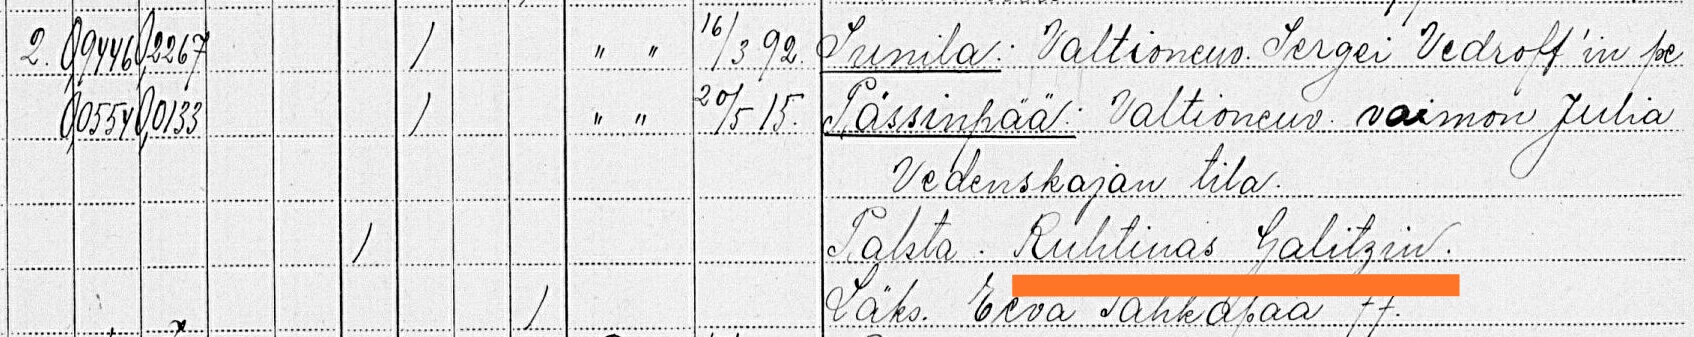 2. 0,9446 0,2267 / " " 16/3 92. Sunila: Valtioneuv. Sergei Vedroff'in pe
0,0554 0,0133 / " " 20/5 15. Pässinpää: Valtioneuv. vaimon Julia
Vedenskajan tila.
/ Palsta. Ruhtinas Galitzin.
/ Läks. Eeva Pahkapää ff.